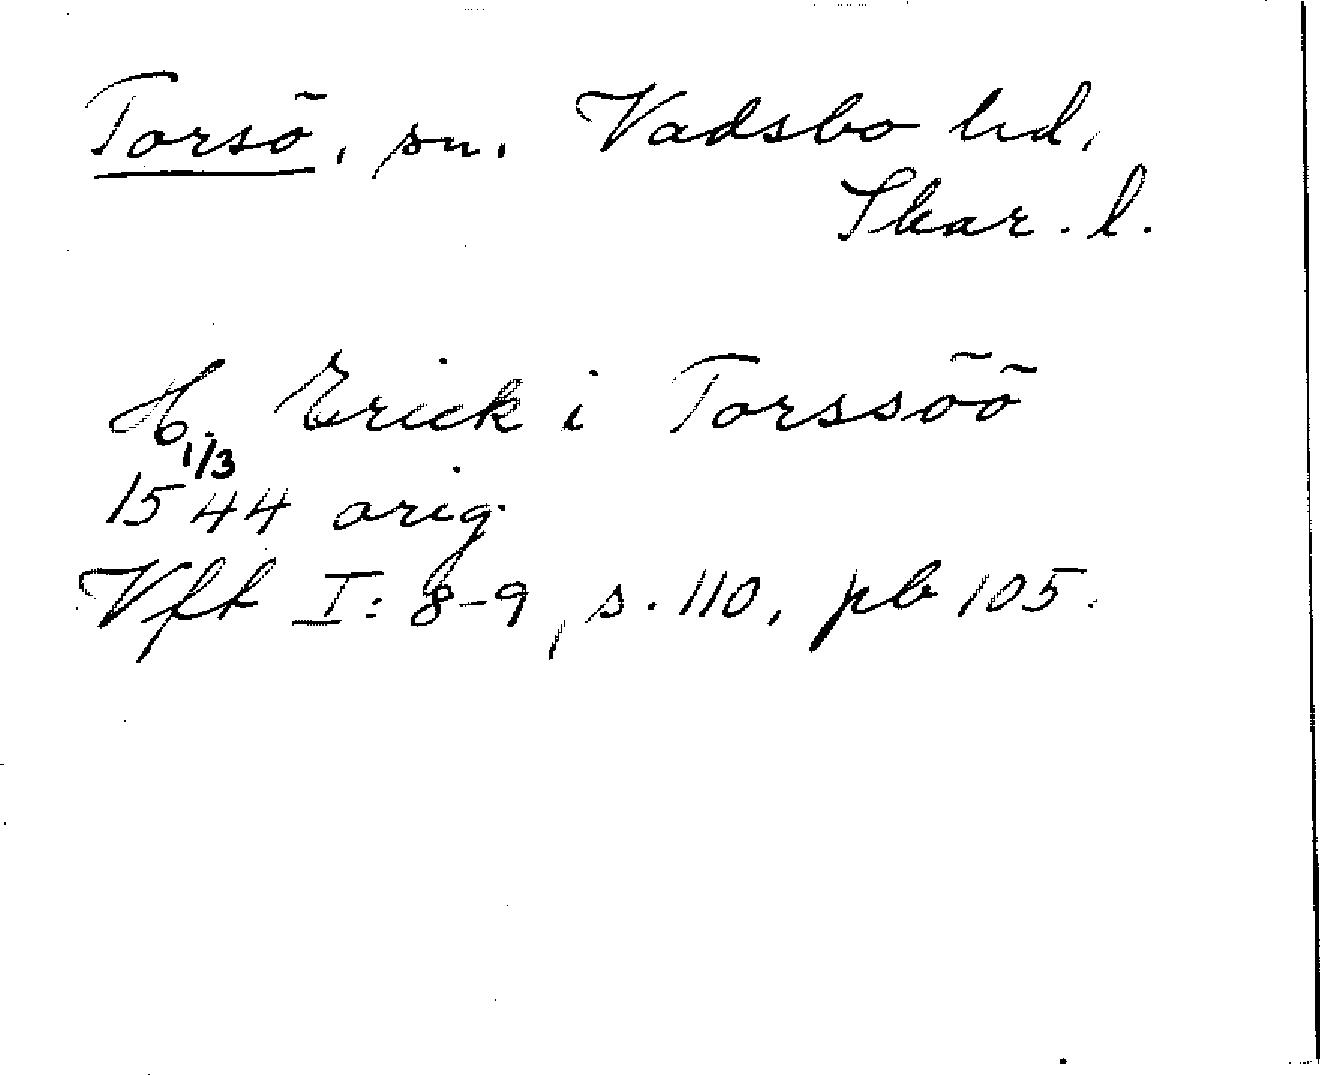 Torsö, sn. Vadsbo hd,
Skar. l.
H. Erick i Torssöö
1/3
1544 orig
Vft I: 8-9, s. 110, pb 105.